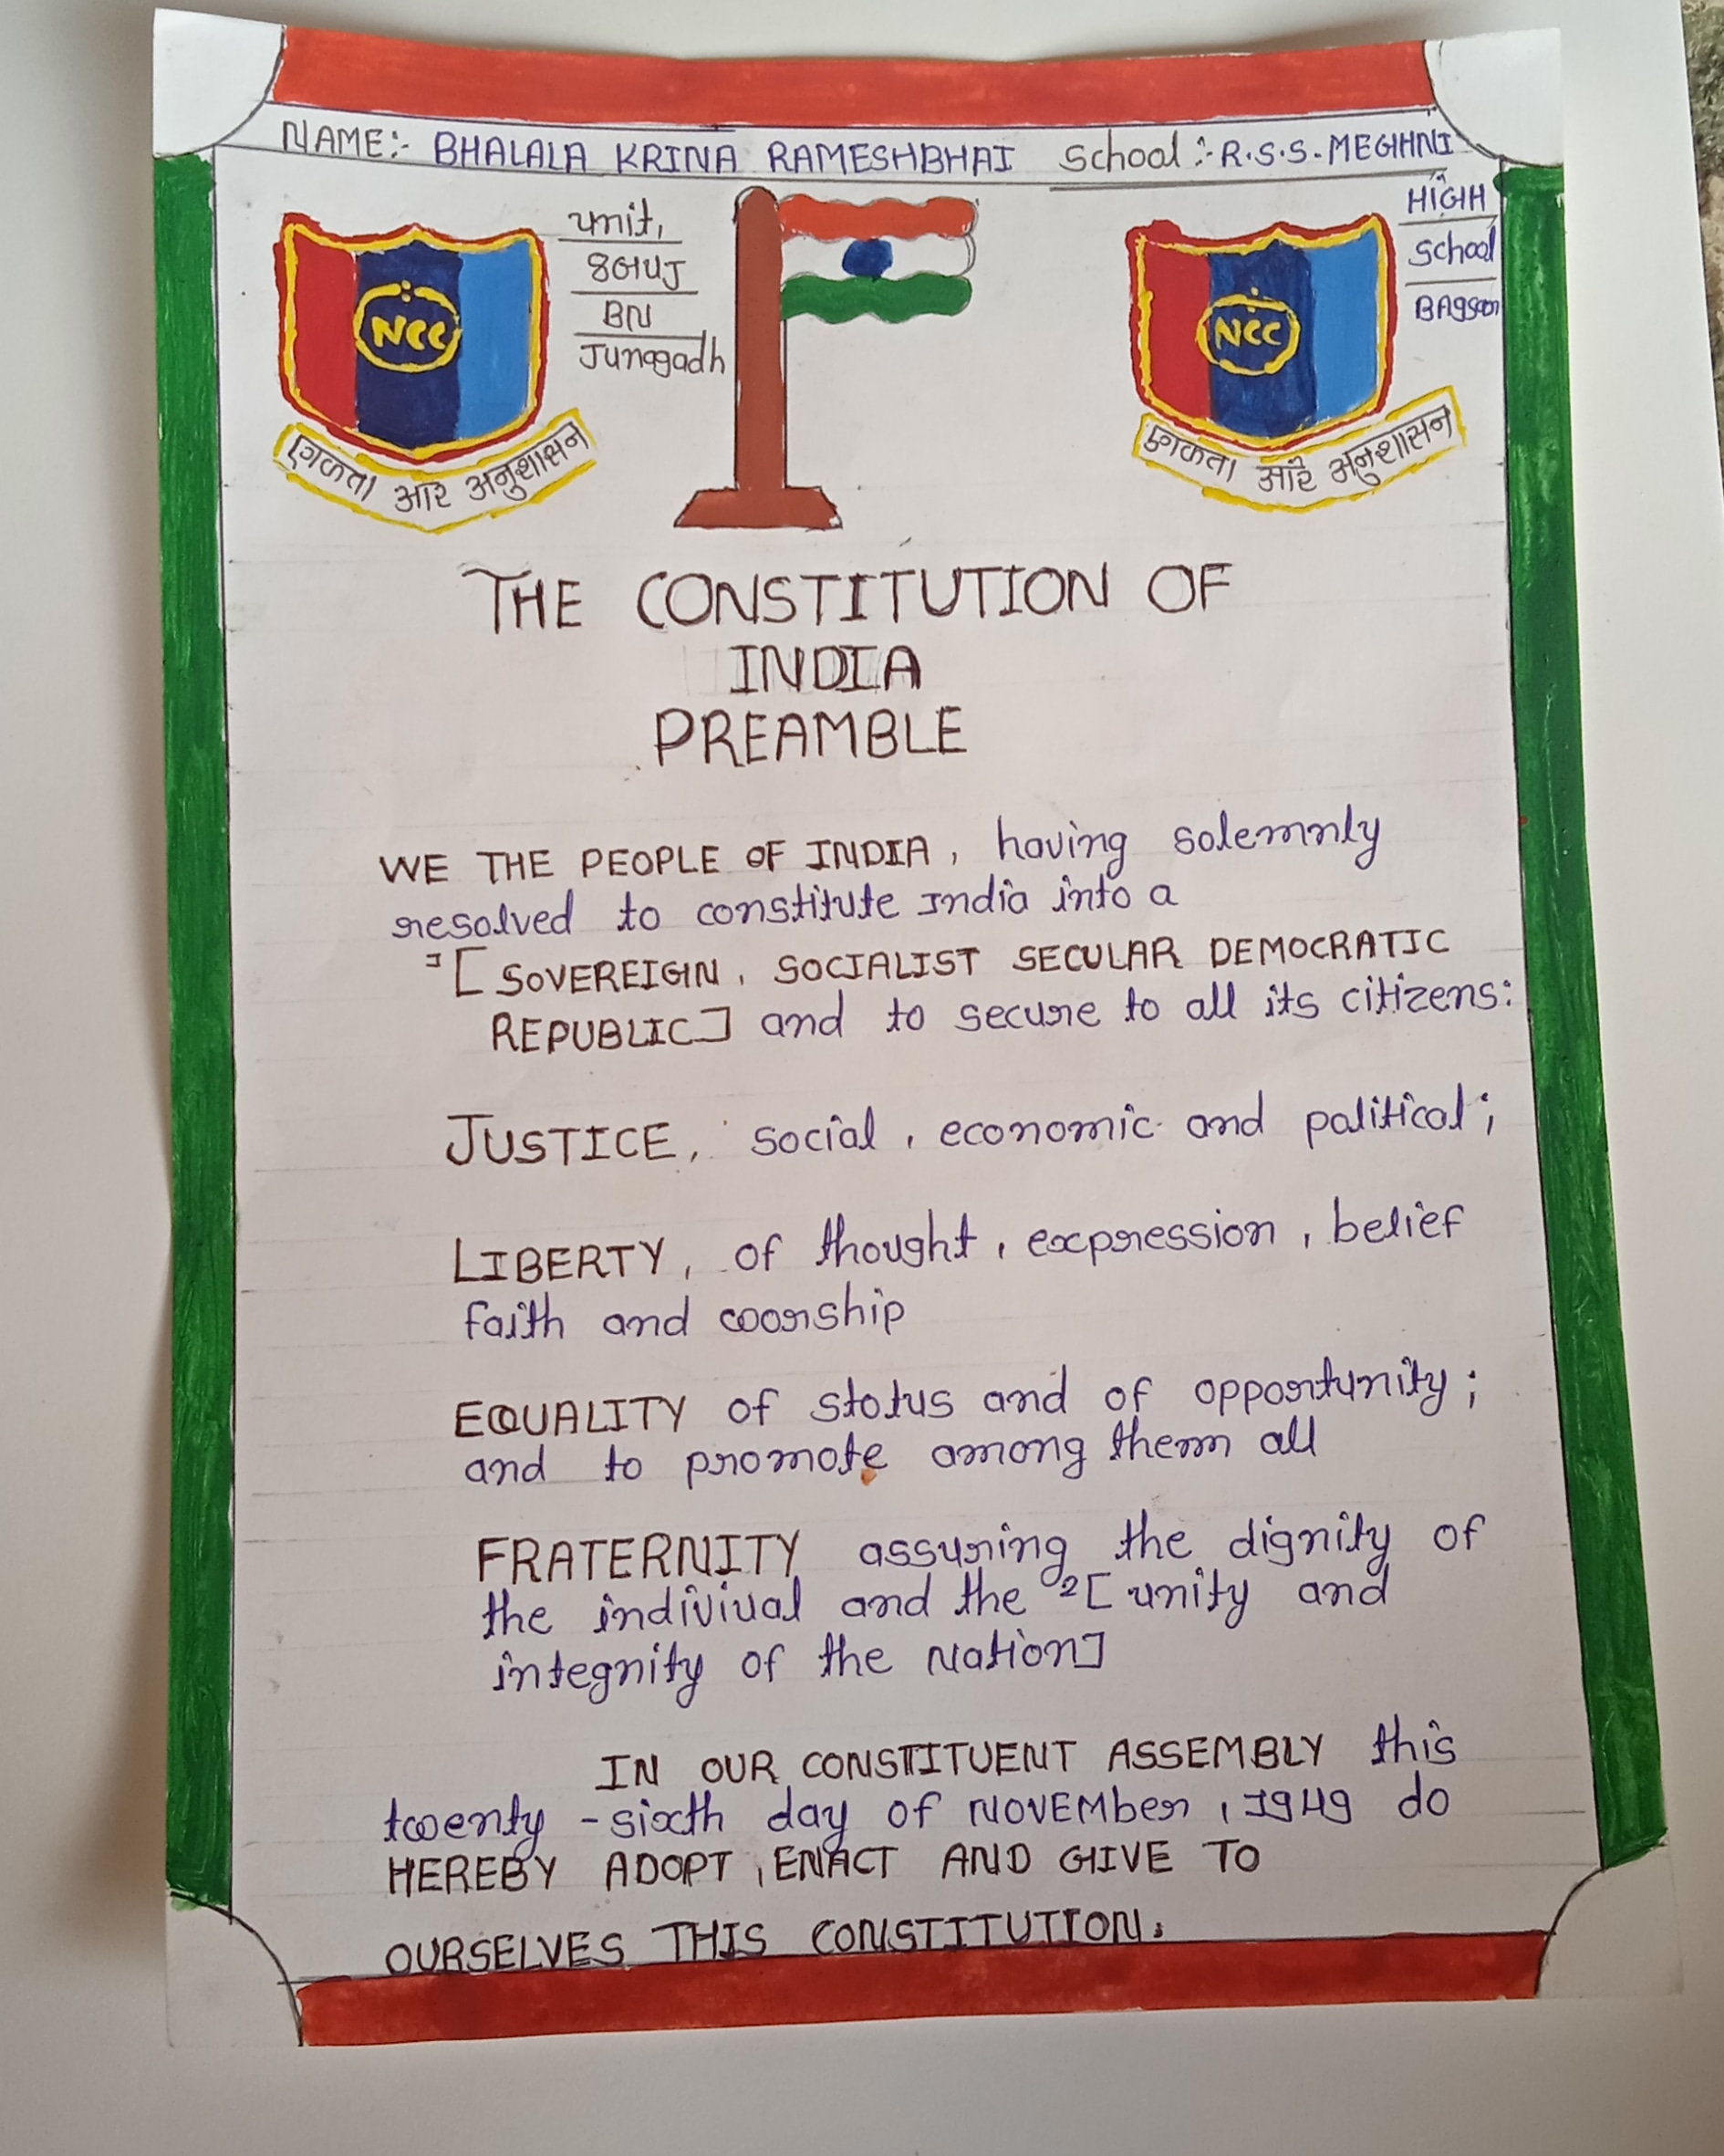 NAME:- BHALALA KRINA RAMESHBHAI School :- R.S.S. MEGHHNI
HIGH
School
unit,
8GUJ
BN
Junagadh
NCC
NCC
एकता और अनुशासन
एकता और अनुशासन
THE CONSTITUTION OF
INDIA
PREAMBLE
WE THE PEOPLE OF INDIA, having solemnly
resolved to constitute India into a
[SOVEREIGN, SOCIALIST SECULAR DEMOCRATIC
REPUBLIC] and to secure to all its citizens:
JUSTICE, social, economic and political;
LIBERTY, of thought, expression, belief
faith and worship
EQUALITY of status and of opportunity;
and to promote among them all
FRATERNITY assuring the dignity of
the indiviual and the ²[unity and
integrity of the Nation]
IN OUR CONSTITUENT ASSEMBLY this
twenty-sixth day of NOVEMber, 1949 do
HEREBY ADOPT, ENACT AND GIVE TO
OURSELVES THIS CONSTITUTION.